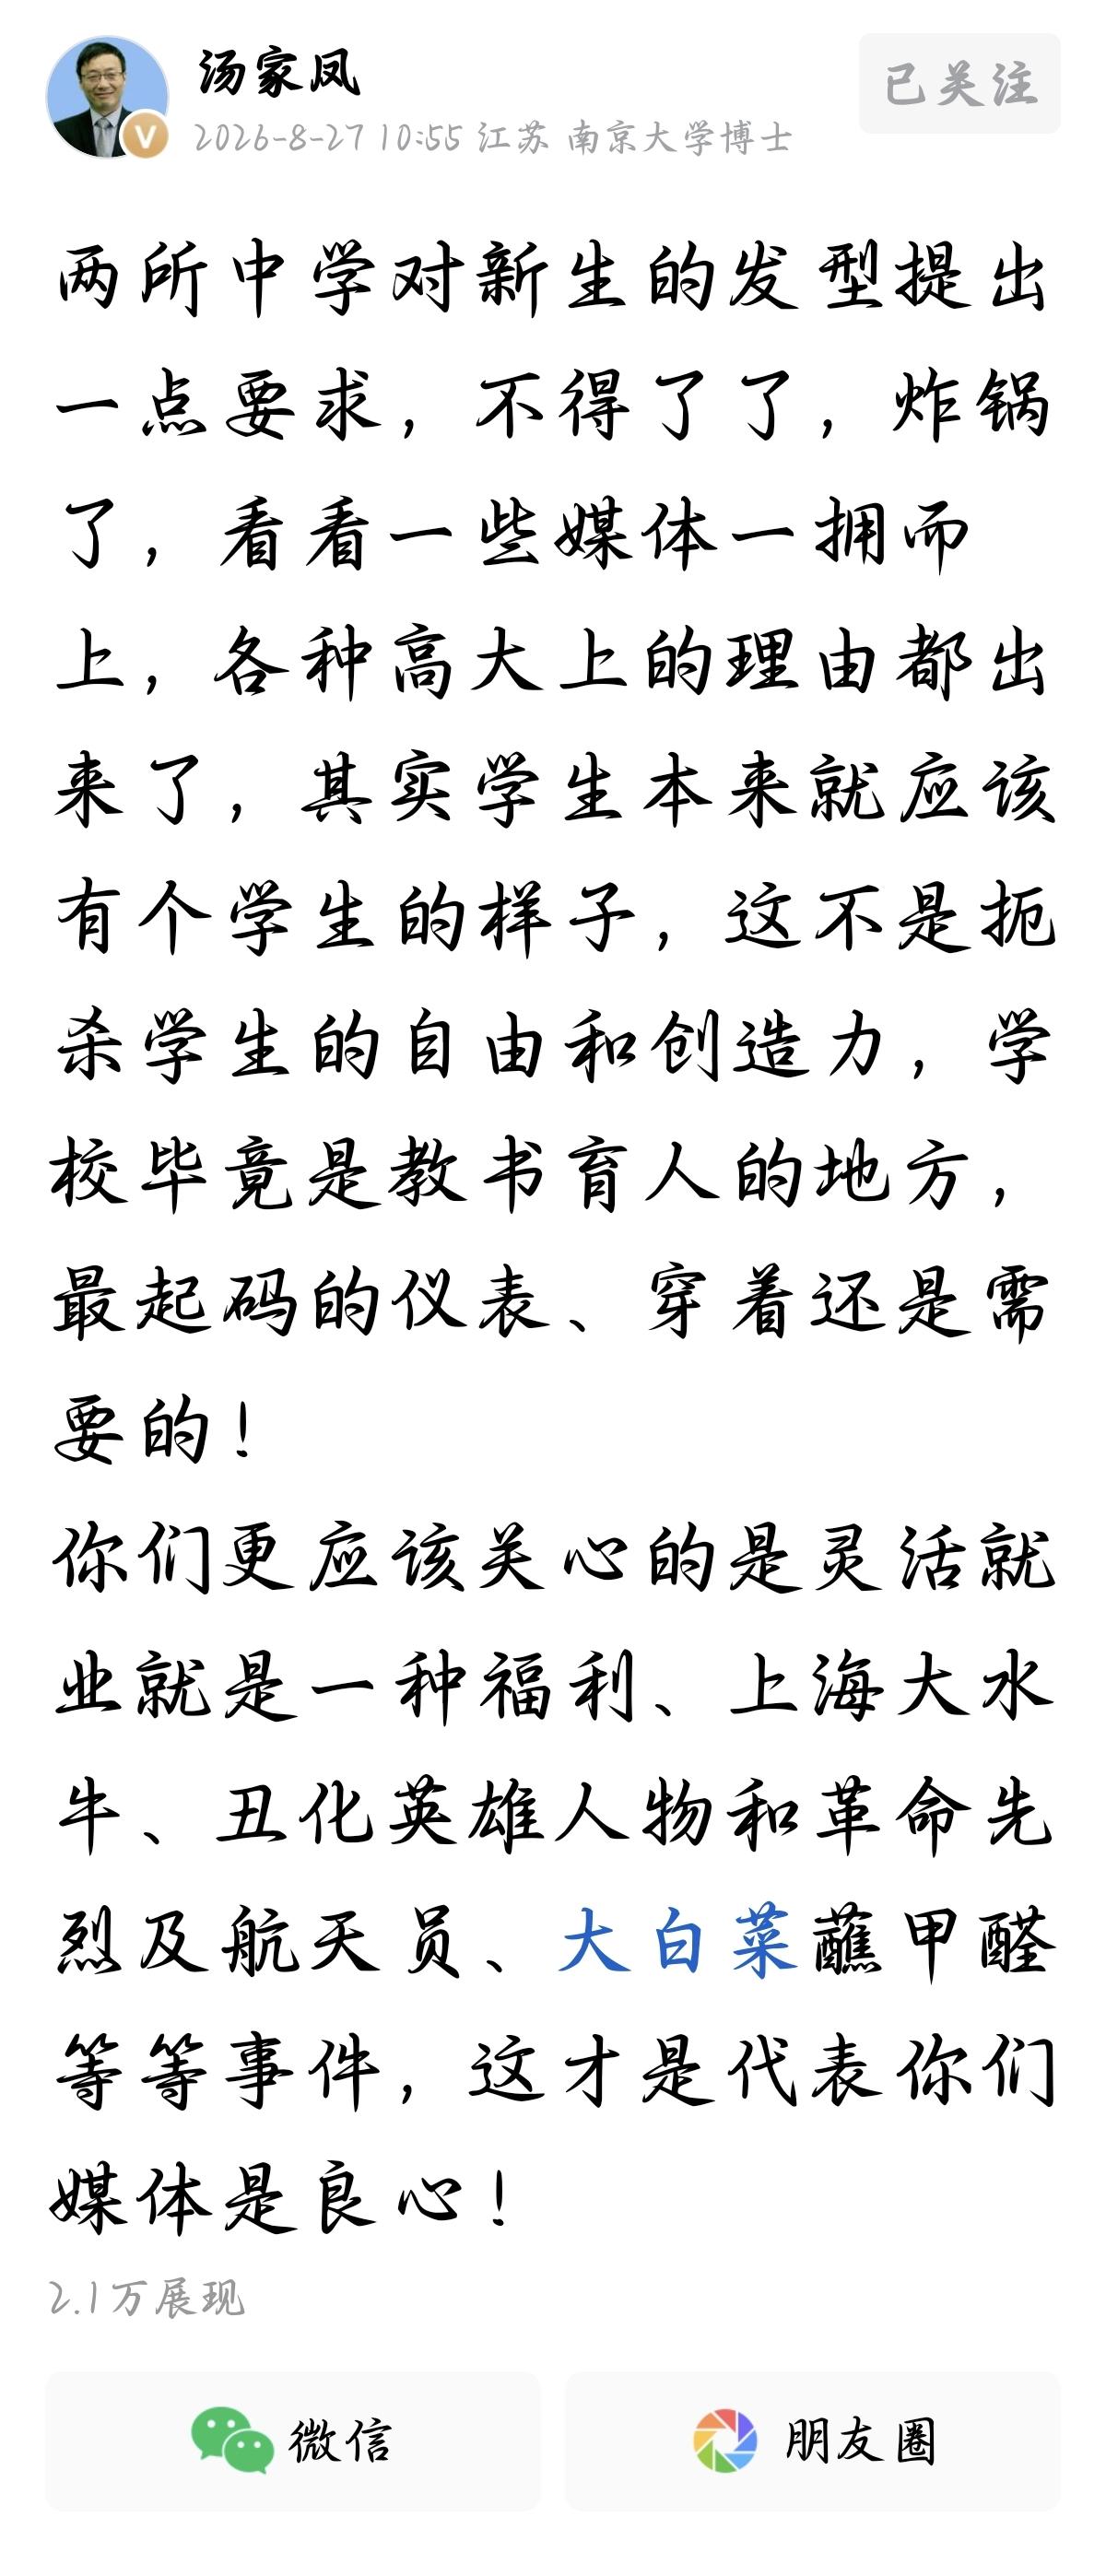 汤家凤
已关注
2026-8-27 10:55 江苏 南京大学博士
两所中学对新生的发型提出
一点要求，不得了了，炸锅
了，看看一些媒体一拥而
上，各种高大上的理由都出
来了，其实学生本来就应该
有个学生的样子，这不是扼
杀学生的自由和创造力，学
校毕竟是教书育人的地方，
最起码的仪表、穿着还是需
要的！
你们更应该关心的是灵活就
业就是一种福利、上海大水
牛、丑化英雄人物和革命先
烈及航天员、大白菜蘸甲醛
等等事件，这才是代表你们
媒体是良心！
2.1万展现
微信
朋友圈